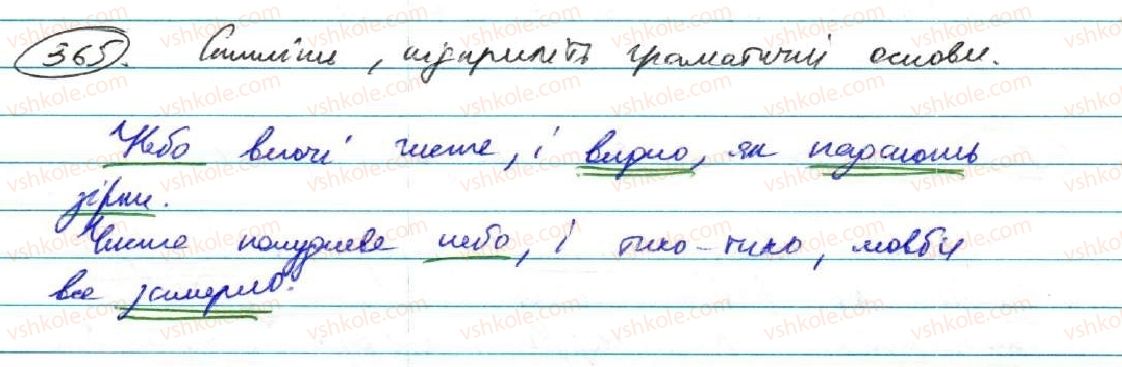 365. Спишіть, підкресліть граматичні основи.
Небо вночі чисте, і видно, як падають
зірки.
Чисте полуднєве небо, і тихо-тихо, мовби
все замерло.